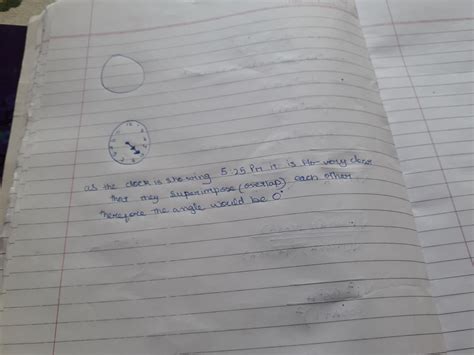 as the clock is showing 5:25 PM it is very close
that they superimpose (overlap) each other
therefore the angle would be 0°